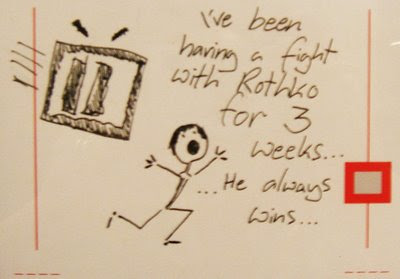 I've been
having a fight
with Rothko
for 3
weeks...
...He always
wins...